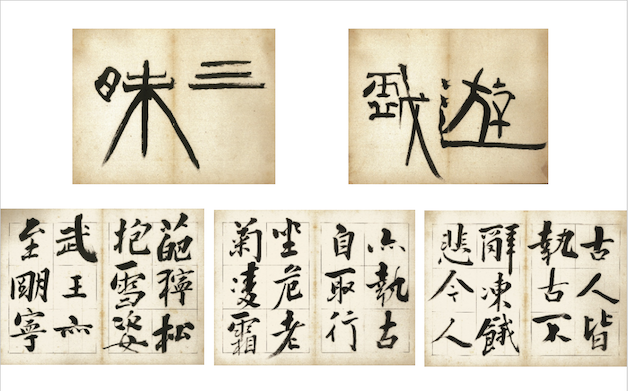 遊戲
三昧
古人皆
執古不
辭凍餓
悲今人
亦執古
自取行
坐危老
菊凌霜
葩獰松
抱雪姿
武王亦
至朙寧